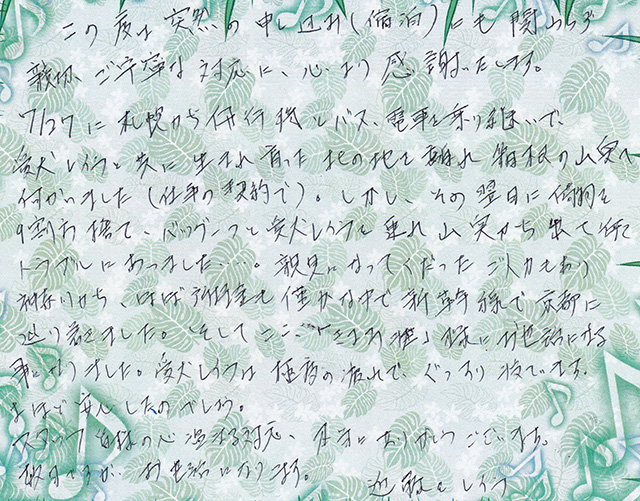 この度は突然の申し込み(宿泊)にも関わらず
親切、ご丁寧な対応に、心より感謝いたします。
7/27に札幌から飛行機とバス、電車を乗り継いで、
愛犬レイラと共に生まれ育った北の地を離れ箱根の山奥へ
向かいました(仕事の契約で)。しかし、その翌日に荷物を
9割方捨て、バッグ一つと愛犬レイラを連れ山奥から出て行く
トラブルにあいました……。親身になってくださった ご人力もあり
神奈川から、ほぼ 僅かな中で新幹線で京都に
辿り着きました。そしてここ、「 」様にお世話になる
事になりました。愛犬レイラは極度の疲れで、ぐっすり寝ています。
よほど安心したのでしょう。
スタッフ皆様の心温まる対応、本当にありがとうございます。
数日ですが、お世話になります。
 レイラ